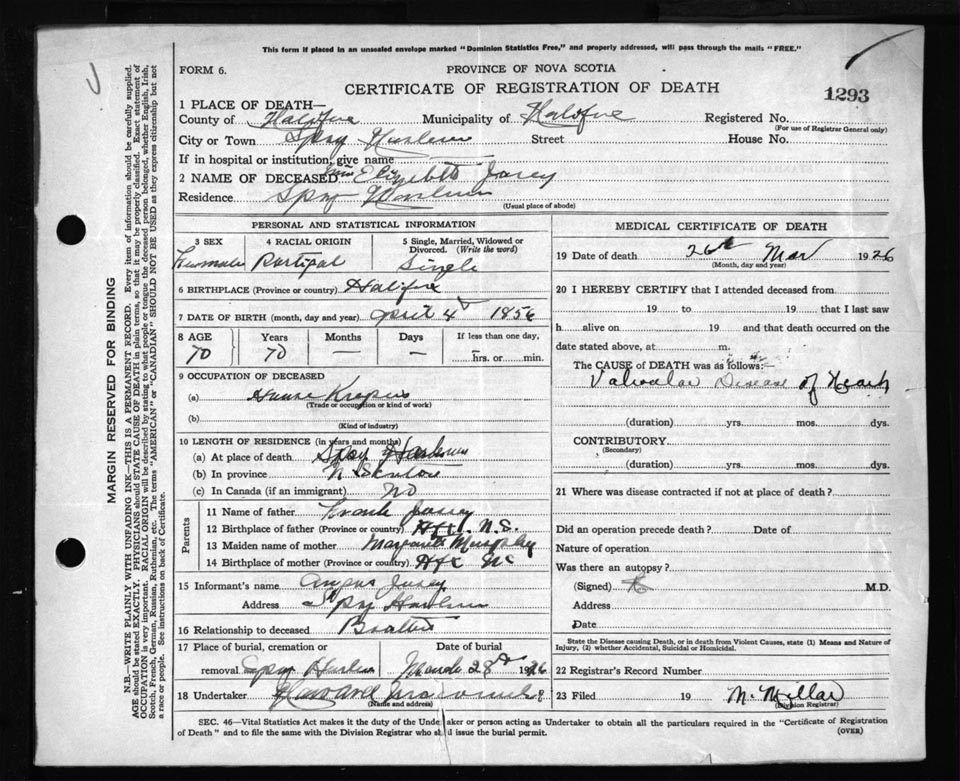 This form if placed in an unsealed envelope marked "Dominion Statistics Free," and properly addressed, will pass through the mails "FREE."
FORM 6.
PROVINCE OF NOVA SCOTIA
CERTIFICATE OF REGISTRATION OF DEATH
1293
1 PLACE OF DEATH—
County of Halifax Municipality of Halifax Registered No.
(For use of Registrar General only)
City or Town Spry Street House No.
If in hospital or institution, give name
2 NAME OF DECEASED
Residence Spry
(Usual place of abode)
PERSONAL AND STATISTICAL INFORMATION
3 SEX
4 RACIAL ORIGIN Portipal
5 Single, Married, Widowed or Divorced. (Write the word) Single
6 BIRTHPLACE (Province or country) Halifax
7 DATE OF BIRTH (month, day and year) 4 1856
8 AGE 70 Years 70 Months — Days — If less than one day, hrs. or min.
9 OCCUPATION OF DECEASED
(a)
(Trade or occupation or kind of work)
(b)
(Kind of industry)
10 LENGTH OF RESIDENCE (in years and months)
(a) At place of death Spry
(b) In province
(c) In Canada (if an immigrant) No
Parents
11 Name of father Frank
12 Birthplace of father (Province or country) N.S.
13 Maiden name of mother
14 Birthplace of mother (Province or country)
15 Informant's name Angus
Address Spry
16 Relationship to deceased
17 Place of burial, cremation or removal Spry
Date of burial March 28 1926
18 Undertaker
(Name and address)
MEDICAL CERTIFICATE OF DEATH
19 Date of death 26th Mar 1926
(Month, day and year)
20 I HEREBY CERTIFY that I attended deceased from
19 to 19 that I last saw
h alive on 19 and that death occurred on
date stated above, at m.
The CAUSE of DEATH was as follows:—
Valvular Disease of Heart
(duration) yrs. mos. dys.
CONTRIBUTORY
(Secondary)
(duration) yrs. mos. dys.
21 Where was disease contracted if not at place of death?
Did an operation precede death? Date of
Nature of operation
Was there an autopsy?
(Signed) M.D.
Address
Date
State the Disease causing Death, or in death from Violent Causes, state (1) Means and Nature of Injury, (2) whether Accidental, Suicidal or Homicidal.
22 Registrar's Record Number
23 Filed 19 M. Millar
(Division Registrar)
SEC. 46—Vital Statistics Act makes it the duty of the Undertaker or person acting as Undertaker to obtain all the particulars required in the "Certificate of Registration
of Death" and to file the same with the Division Registrar who shall issue the burial permit. (OVER)
MARGIN RESERVED FOR BINDING
N.B.—WRITE PLAINLY WITH UNFADING INK—THIS IS A PERMANENT RECORD. Every item of information should be carefully supplied.
AGE should be stated EXACTLY. PHYSICIANS should STATE CAUSE OF DEATH in plain terms, so that it may be properly classified. Exact statement of
OCCUPATION is very important. RACIAL ORIGIN will be described by stating to what people or tongue the deceased person belonged, whether English, Irish,
Scotch, French, German, Russian, Ruthenian, etc. The terms "AMERICAN" or "CANADIAN" SHOULD NOT BE USED as they express citizenship but not
a race or people. See instructions on back of Certificate.